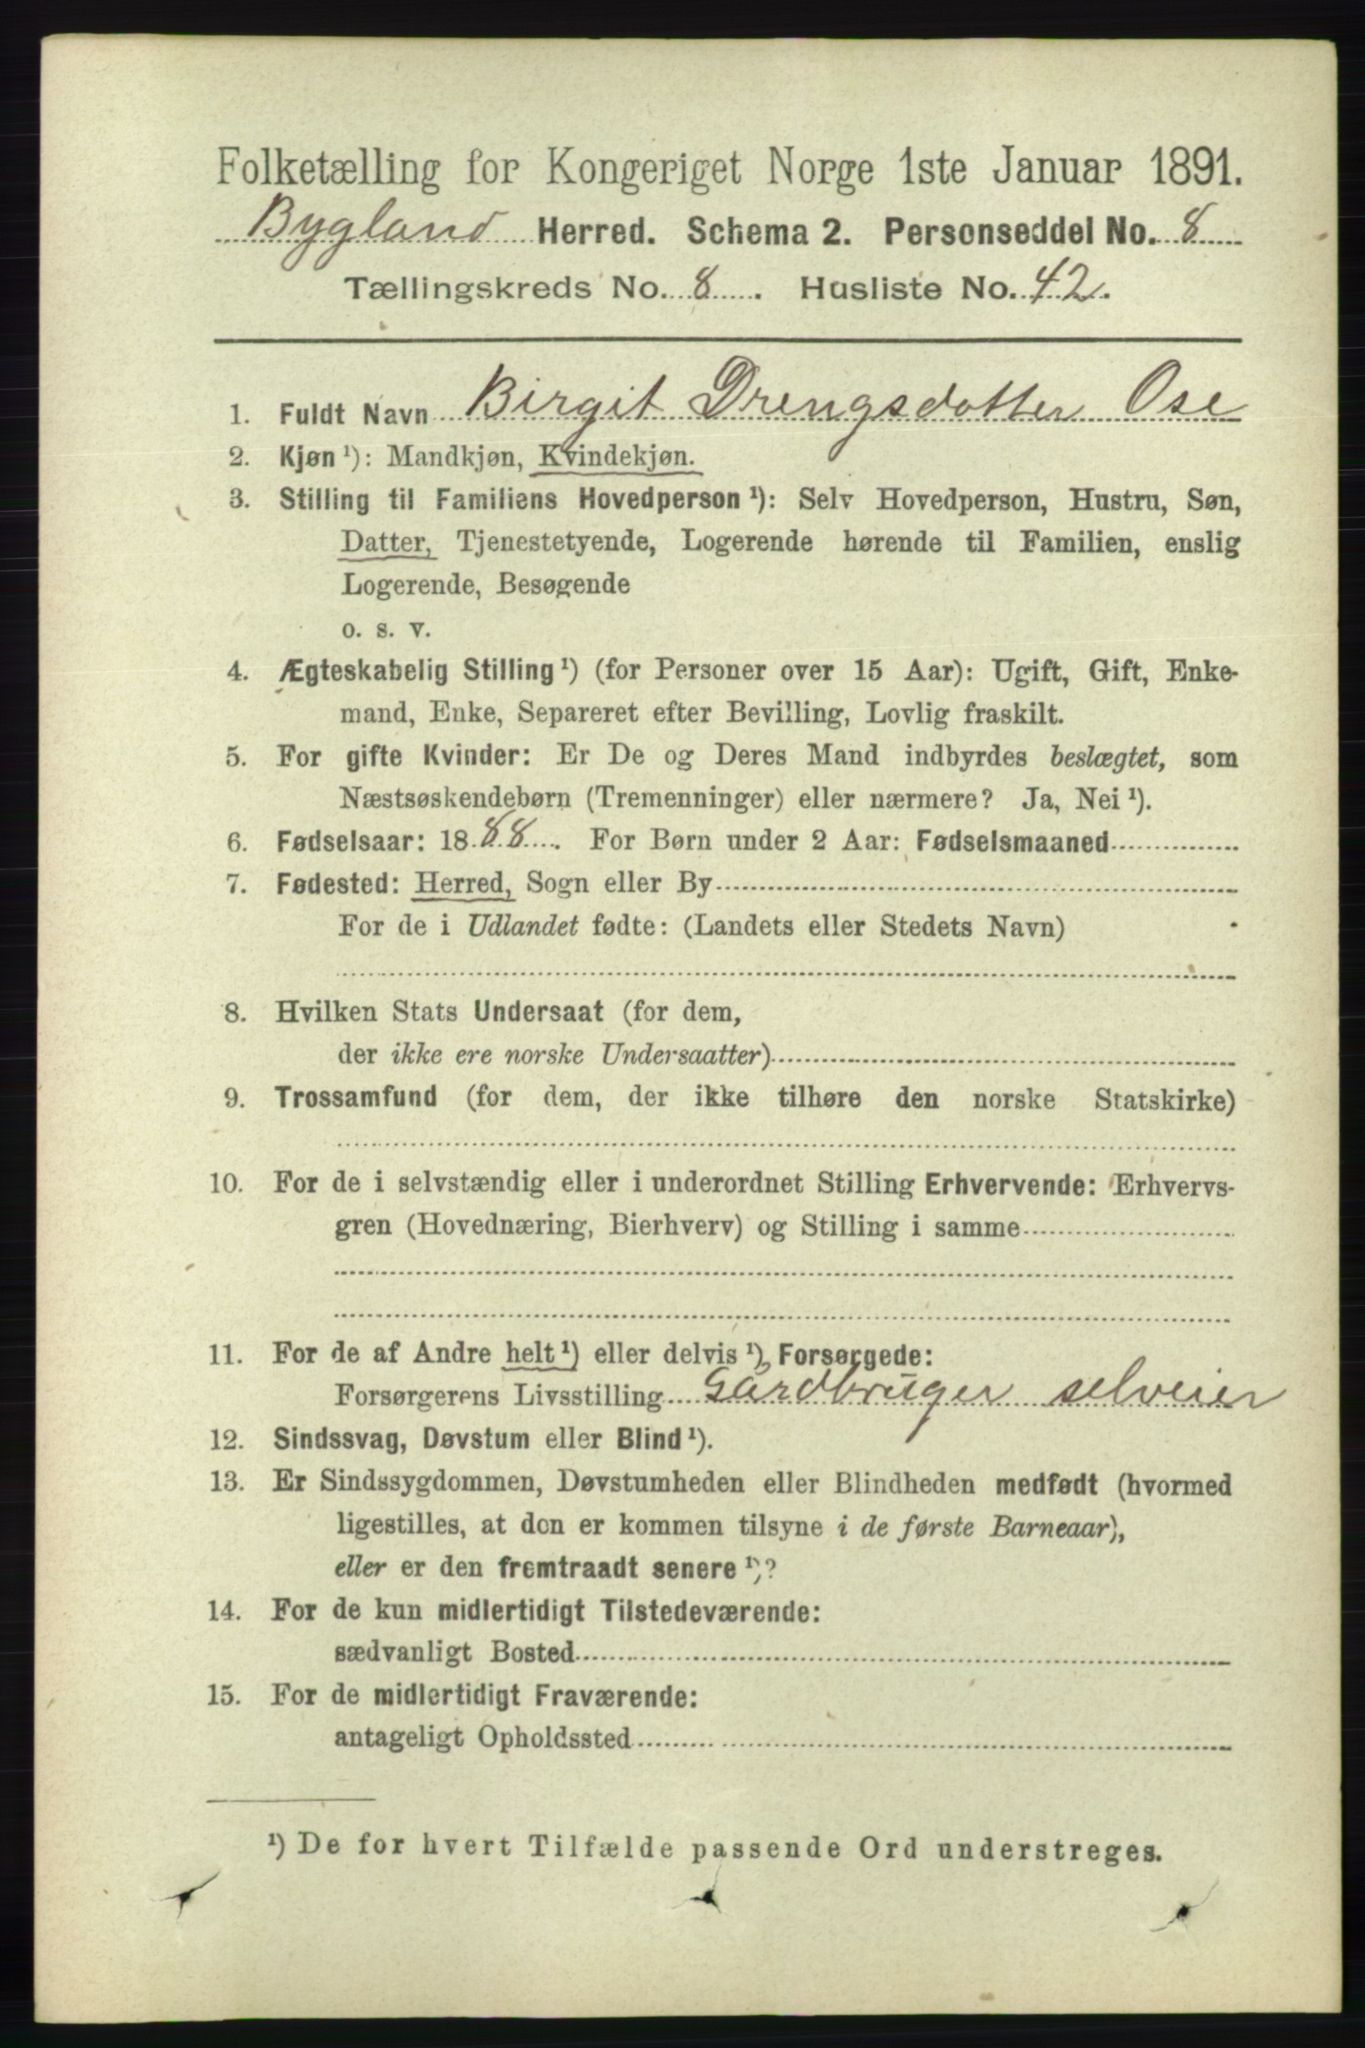 Folketælling for Kongeriget Norge 1ste Januar 1891.
Bygland Herred. Schema 2. Personseddel No. 8
Tællingskreds No. 8. Husliste No. 42.
1. Fuldt Navn Birgit Drengsdotter Ose
2. Kjøn ¹): Mandkjøn, Kvindekjøn.
3. Stilling til Familiens Hovedperson ¹): Selv Hovedperson, Hustru, Søn,
Datter, Tjenestetyende, Logerende hørende til Familien, enslig
Logerende, Besøgende
o. s. v.
4. Ægteskabelig Stilling ¹) (for Personer over 15 Aar): Ugift, Gift, Enke-
mand, Enke, Separeret efter Bevilling, Lovlig fraskilt.
5. For gifte Kvinder: Er De og Deres Mand indbyrdes beslægtet, som
Næstsøskendebørn (Tremenninger) eller nærmere? Ja, Nei ¹).
6. Fødselsaar: 1888. For Børn under 2 Aar: Fødselsmaaned
7. Fødested: Herred, Sogn eller By
For de i Udlandet fødte: (Landets eller Stedets Navn)
8. Hvilken Stats Undersaat (for dem,
der ikke ere norske Undersaatter)
9. Trossamfund (for dem, der ikke tilhøre den norske Statskirke)
10. For de i selvstændig eller i underordnet Stilling Erhvervende: Erhvervs-
gren (Hovednæring, Bierhverv) og Stilling i samme
11. For de af Andre helt ¹) eller delvis ¹), Forsørgede:
Forsørgerens Livsstilling Gårdbruger selveier
12. Sindssvag, Døvstum eller Blind ¹).
13. Er Sindssygdommen, Døvstumheden eller Blindheden medfødt (hvormed
ligestilles, at den er kommen tilsyne i de første Barneaar),
eller er den fremtraadt senere ¹)?
14. For de kun midlertidigt Tilstedeværende:
sædvanligt Bosted
15. For de midlertidigt Fraværende:
antageligt Opholdssted
¹) De for hvert Tilfælde passende Ord understreges.